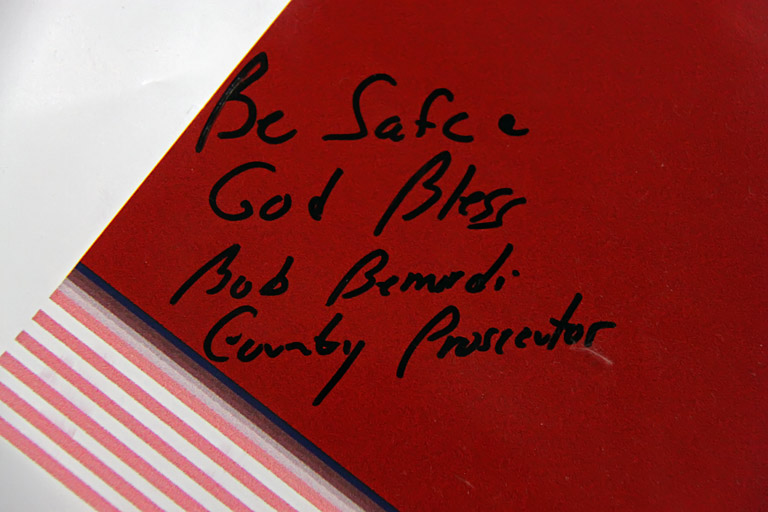 Be Safe
God Bless
Bob Bernardi
County Prosecutor